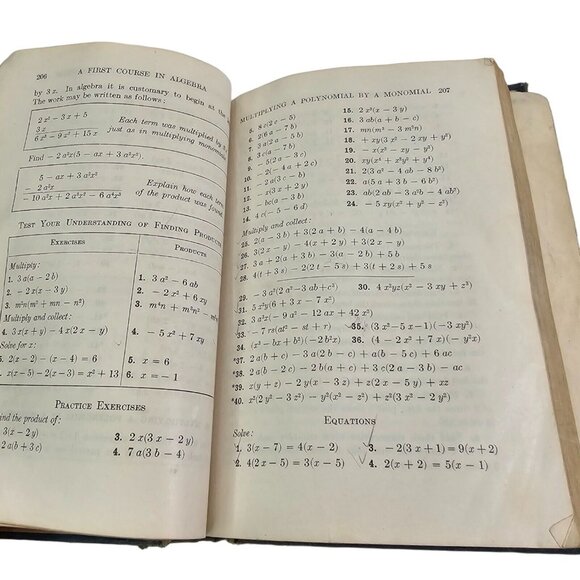 206 A FIRST COURSE IN ALGEBRA
by 3 x. In algebra it is customary to begin at the
The work may be written as follows:
2 x² − 3 x + 5
3 x
6 x³ − 9 x² + 15 x
Each term was multiplied by 3
just as in multiplying monomi
Find − 2 a²x(5 − ax + 3 a²x²).
5 − ax + 3 a²x²
− 2 a²x
− 10 a²x + 2 a³x² − 6 a⁴x³
Explain how each term
of the product was found.
TEST YOUR UNDERSTANDING OF FINDING PRODUCTS
EXERCISES
PRODUCTS
Multiply:
1. 3 a(a − 2 b)
1. 3 a² − 6 ab
2. − 2 x(x − 3 y)
2. − 2 x² + 6 xy
3. m²n(m² + mn − n²)
3. m⁴n + m³n² − m
Multiply and collect:
4. 3 x(x + y) − 4 x(2 x − y)
4. − 5 x² + 7 xy
Solve for x:
5. 2(x − 2) − (x − 4) = 6
5. x = 6
x(x − 5) − 2(x − 3) = x² + 13
6. x = − 1
PRACTICE EXERCISES
ind the product of:
3(x − 2 y)
3. 2 x(3 x − 2 y)
2 a(b + 3 c)
4. 7 a(3 b − 4)
MULTIPLYING A POLYNOMIAL BY A MONOMIAL 207
5. 8 c(2 c − 5)
15. 2 x²(x − 3 y)
6. 6(a − 7 b)
16. 3 ab(a + b − c)
17. mn(m² − 3 m²n)
8. 3 c(a − 7 b)
18. + xy(3 x² − 2 xy + y²)
9. − 5(2 a − 3 c)
19. − x(x² − xy − y²)
10. − 2(− 4 a + 2 c)
20. xy(x⁴ + x²y² + y⁴)
11. − 2 a(3 c − b)
21. 2(3 a² − 4 ab − 8 b²)
12. − x(3 x + 2 y)
22. a(5 a + 3 b − 6 b²)
13. − bc(a − 3 b)
23. ab(2 ab − 3 a²b − 4 ab²)
14. 4 c(− 5 − 6 d)
24. − 5 xy(x² + y² − z²)
Multiply and collect:
25. 2(a − 3 b) + 3(2 a + b) − 4(a − 4 b)
26. 3(2 x − y) − 4(x + 2 y) + 3(2 x − y)
27. 3 a + 2(a + 3 b) − 2(a − b) + 5 b
28. 4(t + 3 s) − 2(2 t − 5 s) + 3(t + 2 s) + 5 s
29. − 3 a²(2 a³ − 3 ab + c²)
30. 4 x³yz(x² − 3 xy + z³)
31. 5 x²y(6 + 3 x − 7 x²)
32. 3 a²x(− 9 a² − 12 ax + 42 x²)
33. − 7 rs(at² − st + r)
35. (3 x² − 5 x − 1)(− 3 xy²)
34. (x² − bx + b²)(− 2 bx²)
36. (4 − 2 x² + 7 x)(− y²x)
*37. 2 a(b + c) − 3 a(2 b − c) + a(b − 5 c) + 6 ac
*38. 2 a(b − 2 c) − 2 b(a + c) + 3 c(2 a − 3 b) − ac
*39. x(y + z) − 2 y(x − 3 z) + z(2 x − 5 y) + xz
*40. x²(2 y² − 3 z²) − y²(x² − z²) + z²(3 x² − 2 y²)
EQUATIONS
Solve:
1. 3(x − 7) = 4(x − 2)
3. − 2(3 x + 1) = 9(x + 2)
2. 4(2 x − 5) = 3(x − 5)
4. 2(x + 2) = 5(x − 1)